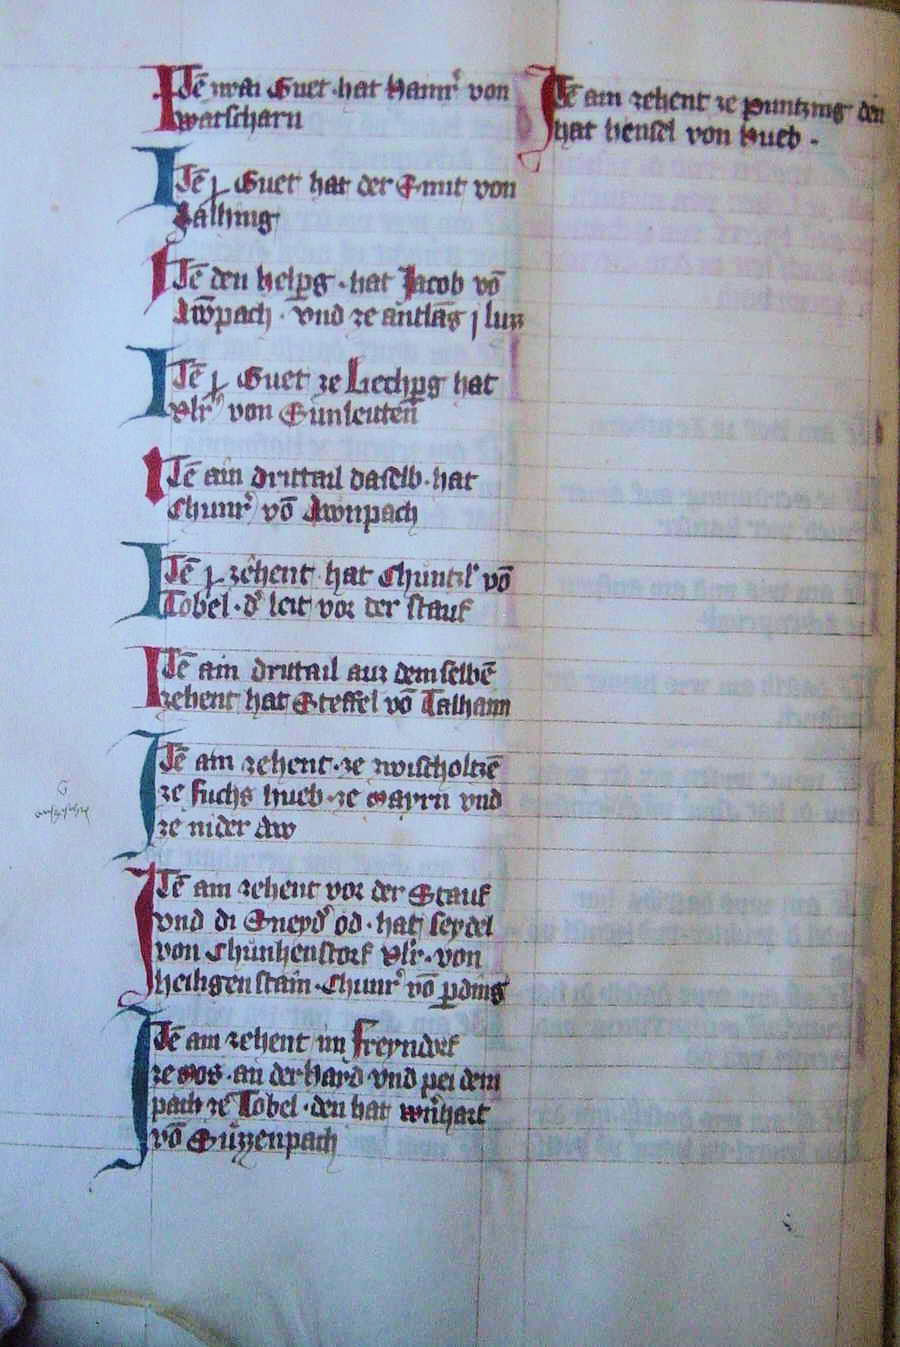 Itē zwai Guet · hat Hainrˀ von
watscharn
Itē j Guet hat der Smit von
Talhing
Itē den helpg · hat Jacob vō
Awpach · vnd ze antlas j luz
Itē j Guet ze Liechpg hat
Vlrˀ von Sunleuttn̄
Itē ain drittail daselb · hat
Chunrˀ vō Awnpach
Itē j zehent hat Chuntzlˀ vō
Tobel · dˀ leit vor der stauf
Itē ain drittail auz dem selbē
zehent hat Steffel vō Talhaim
Itē ain zehent · ze zwischoltzē
ze fuchs hueb · ze Mayrn vnd
ze nider aw
Itē ain zehent vor der Stauf
vnd di Sneydˀ od · hat seydel
von Chünhenstorf Vlrˀ · von
heiligenstain · Chunrˀ vō pding
Itē ain zehent im freyndorf
ze Mos · an der Hard vnd pei dem
pach ze Tobel · den hat wn̄hart
vō Güzzenpach
Itē ain zehent ze Puntzing den
hat hensel von Hueb ·